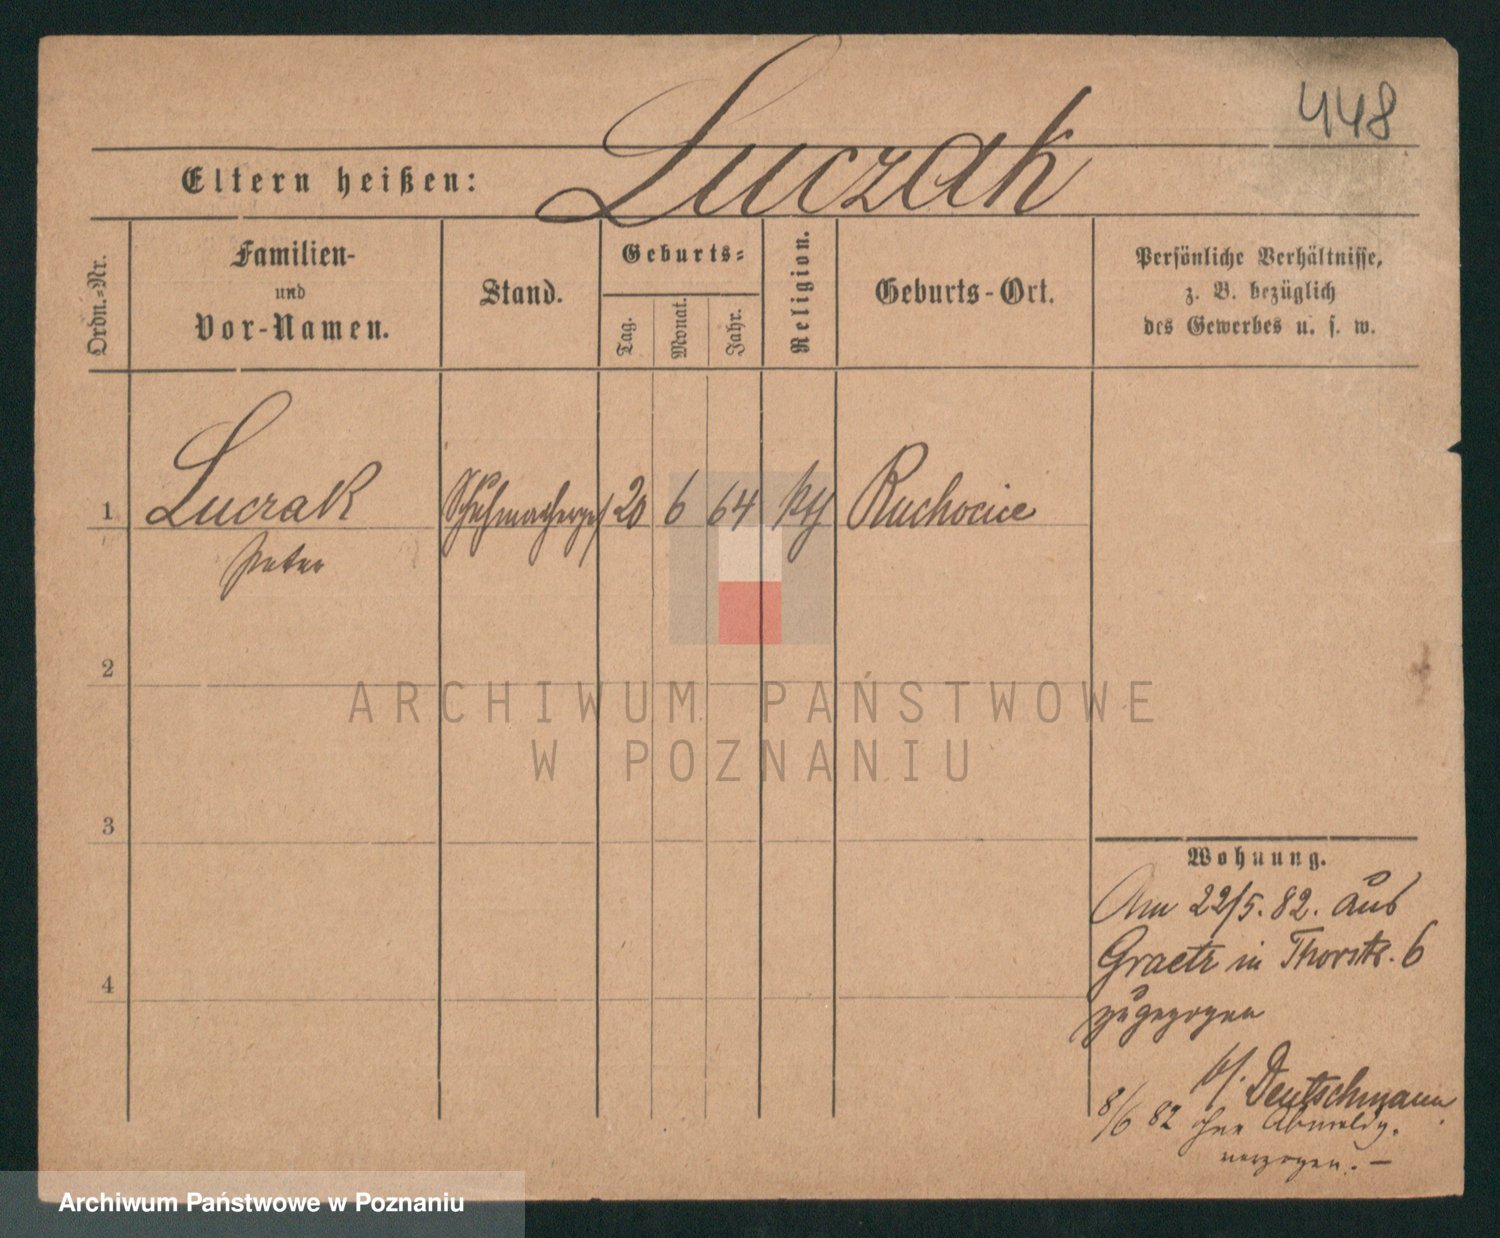 448
Eltern heißen: Luczak
Ordn.-Nr.
Familien-
und
Vor-Namen.
Stand.
Geburts-
Tag.
Monat.
Jahr.
Religion.
Geburts-Ort.
Persönliche Verhältnisse,
z. B. bezüglich
des Gewerbes u. s. w.
1 Luczak Schuhmacherges 20 6 64 kth Ruchocice
Peter
2
3
4
Wohnung.
Am 22/5. 82. aus
Graetz in Thorstr. 6
zugezogen
b/. Deutschmann
8/6 82 ohne Abmeldg.
verzogen. –
ARCHIWUM PAŃSTWOWE
W POZNANIU
Archiwum Państwowe w Poznaniu